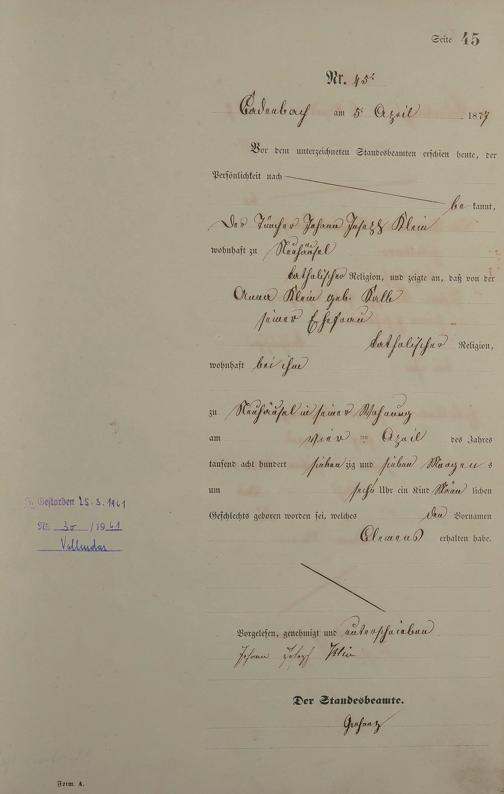 Seite 45
Nr. 45
Cadenbach am 5t April 1877
Vor dem unterzeichneten Standesbeamten erschien heute, der
Persönlichkeit nach
be kannt,
Der Tüncher Johann Joseph Klein
wohnhaft zu Neuhäusel
katholischer Religion, und zeigte an, daß von der
Anna Klein geb. Kalb
seiner Ehefrau
katholischer Religion,
wohnhaft bei ihm
zu Neuhäusel in seiner Wohnung
am vier ten April des Jahres
tausend acht hundert sieben zig und sieben Morgen s
um sechs Uhr ein Kind Männ lichen
Geschlechts geboren worden sei, welches den Vornamen
Clemens erhalten habe.
Gestorben 25.3.1961
Nr. 30 / 1961
Vallendar
Vorgelesen, genehmigt und unterschrieben
Johann Joseph Klein
Der Standesbeamte.
Form. A.